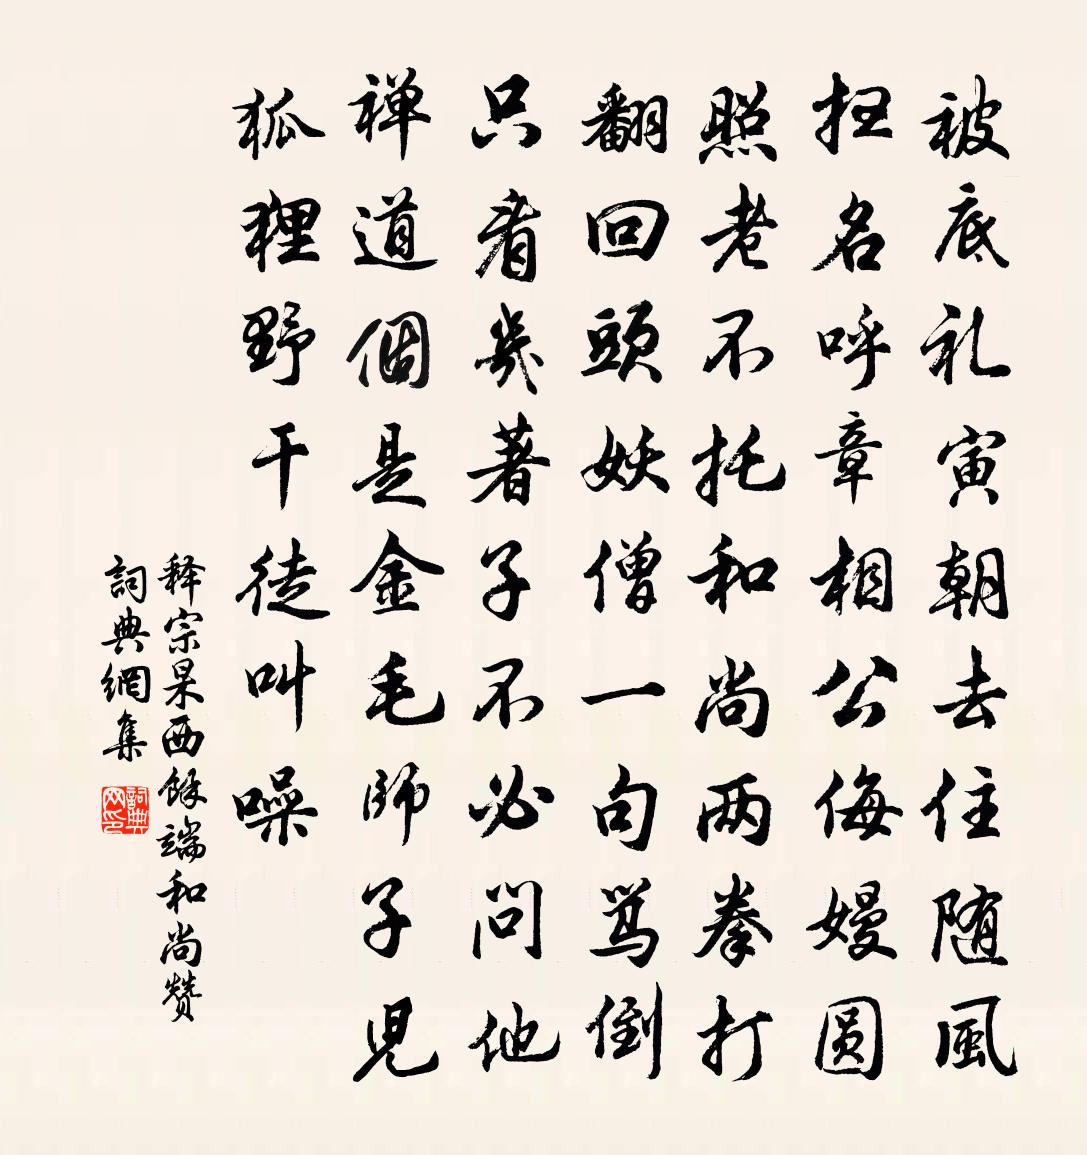 被底礼寅朝去住随風
扫名呼章相公侮嫚圆
照老不托和尚两拳打
翻回頭妖僧一句骂倒
只者幾著子不必問他
禅道個是金毛師子児
狐狸野干徒叫噪
释宗杲西餘端和尚赞
詞典網集
詞典网印